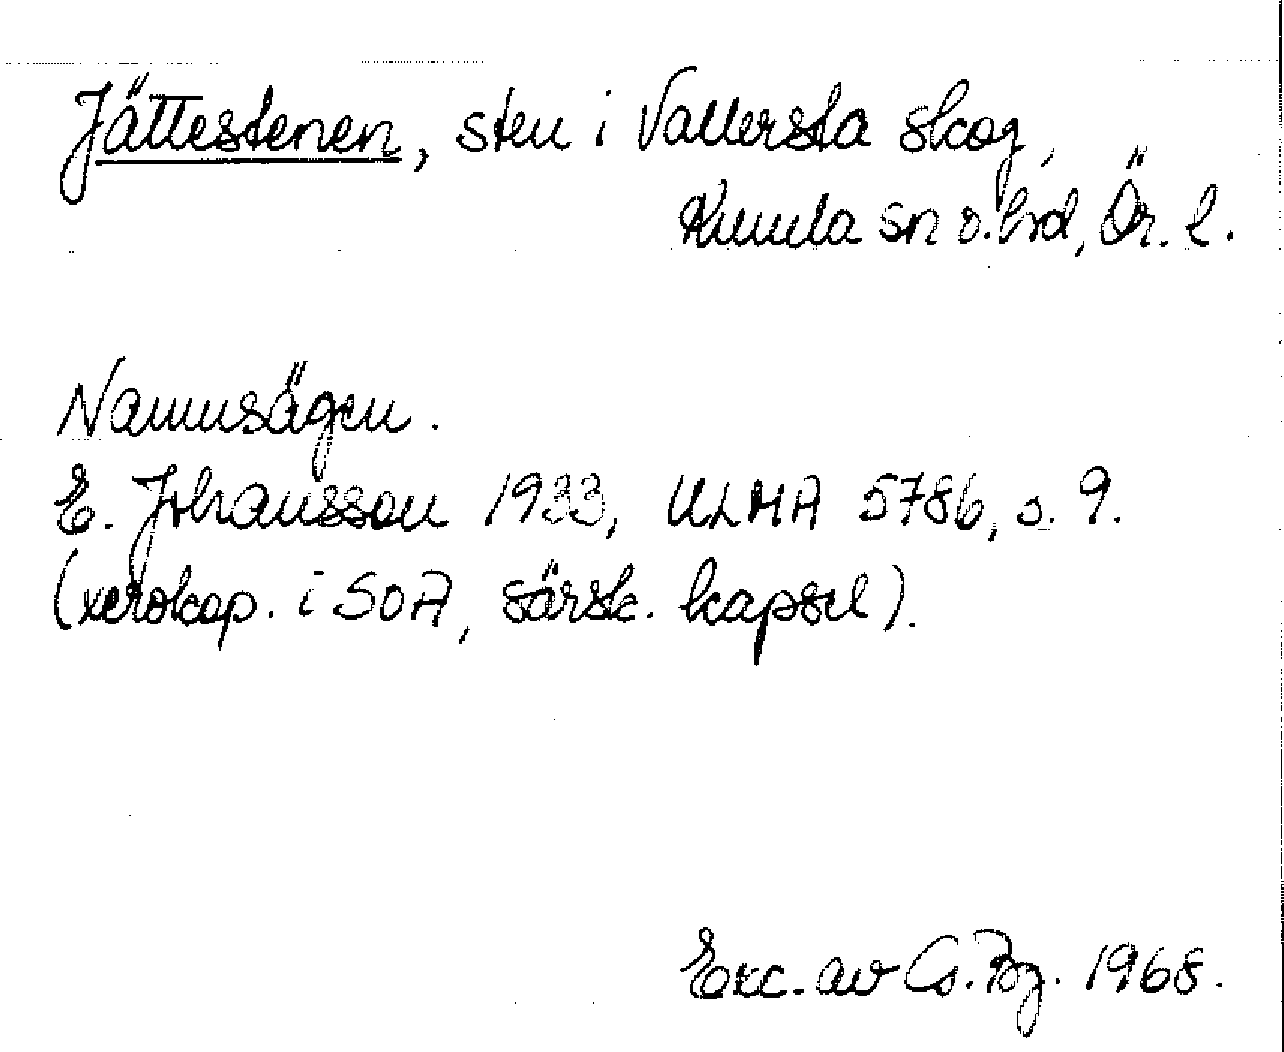 Jättestenen, sten i Vallersta skog,
Kumla sn o. hrd, Ör. l.
Namnsägen.
E. Johansson 1933, ULMA 5786, s. 9.
(xerokop. i SOA, särsk. kapsel).
Exc. av Cs. Bg. 1968.